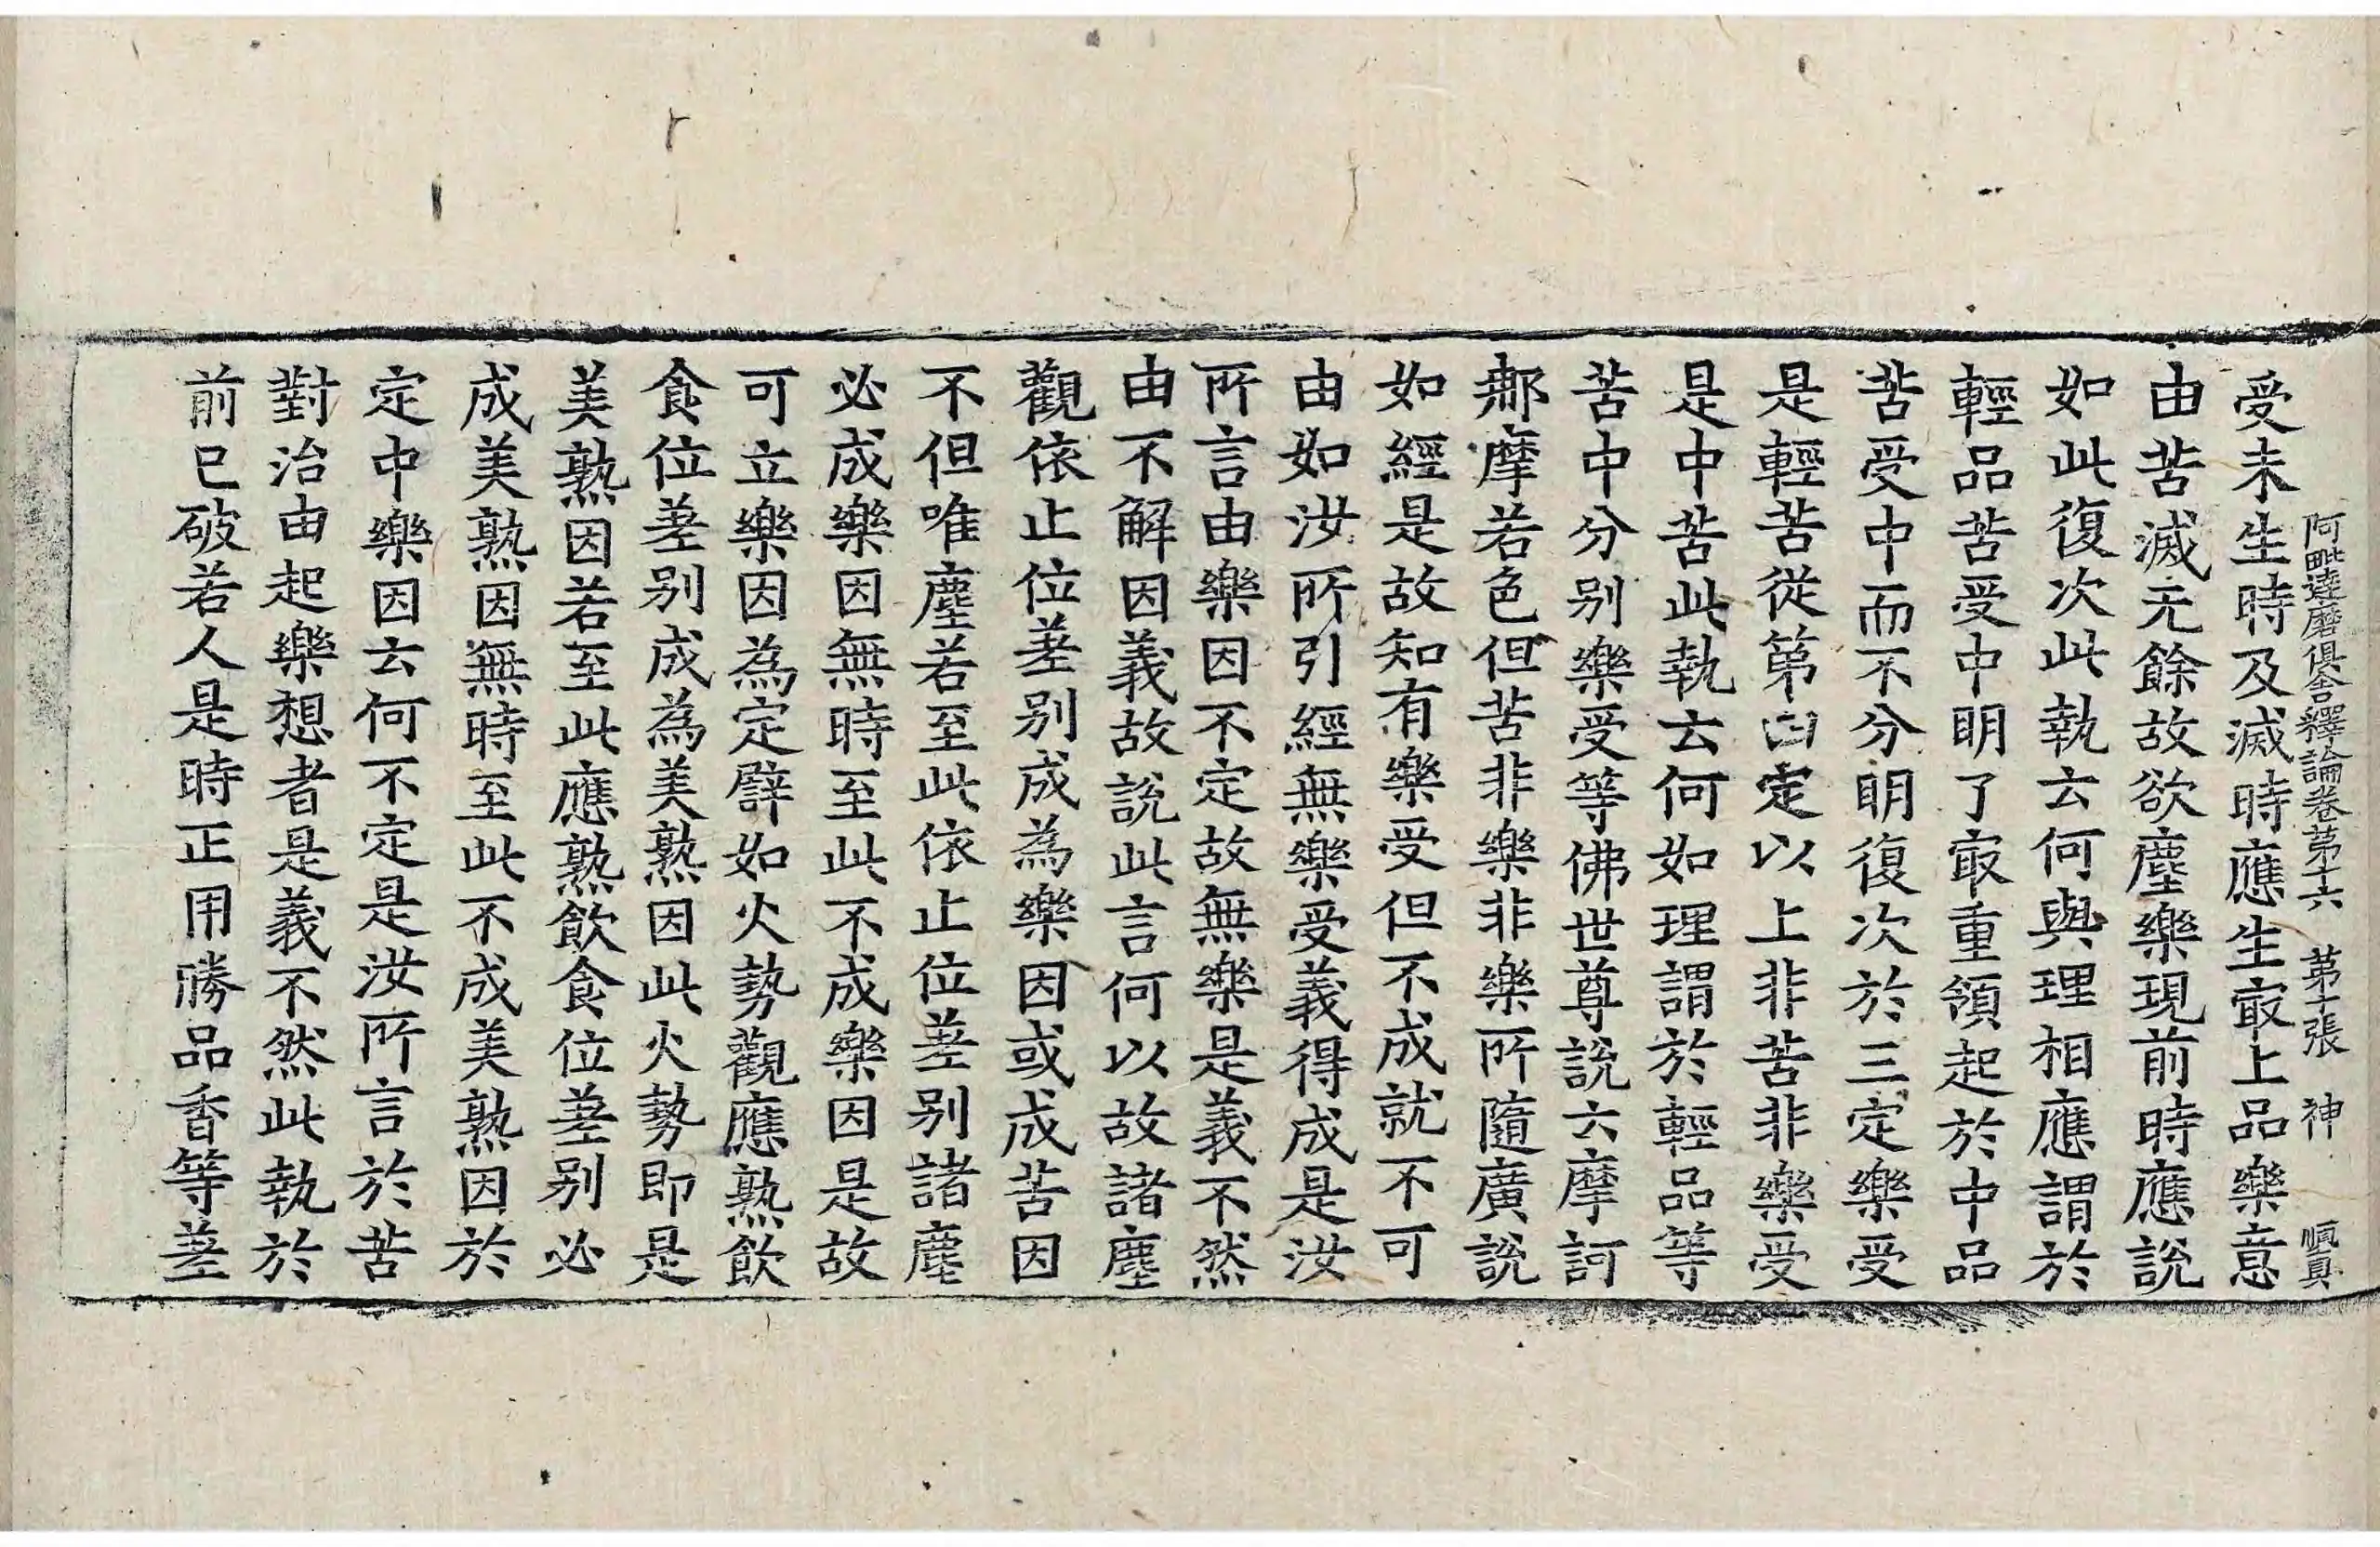 阿毗達磨俱舍釋論卷第十六 第十張 神
受未生時及滅時應生㝡上品樂意
由苦滅无餘故欲塵樂現前時應說
如此復次此執云何與理相應謂於
輕品苦受中明了㝡重領起於中品
苦受中而不分明復次於三定樂受
是輕苦從第四定以上非苦非樂受
是中苦此執云何如理謂於輕品等
苦中分別樂受等佛世尊說六摩訶
那摩若色但苦非樂非樂所隨廣說
如經是故知有樂受但不成就不可
由如汝所引經無樂受義得成是汝
所言由樂因不定故無樂是義不然
由不解因義故說此言何以故諸塵
觀依止位差別成為樂因或成苦因
不但唯塵若至此依止位差別諸塵
必成樂因無時至此不成樂因是故
可立樂因為定譬如火勢觀應熟飲
食位差別成為美熟因此火勢即是
美熟因若至此應熟飲食位差別必
成美熟因無時至此不成美熟因於
定中樂因云何不定是汝所言於苦
對治由起樂想者是義不然此執於
前已破若人是時正用勝品香等差